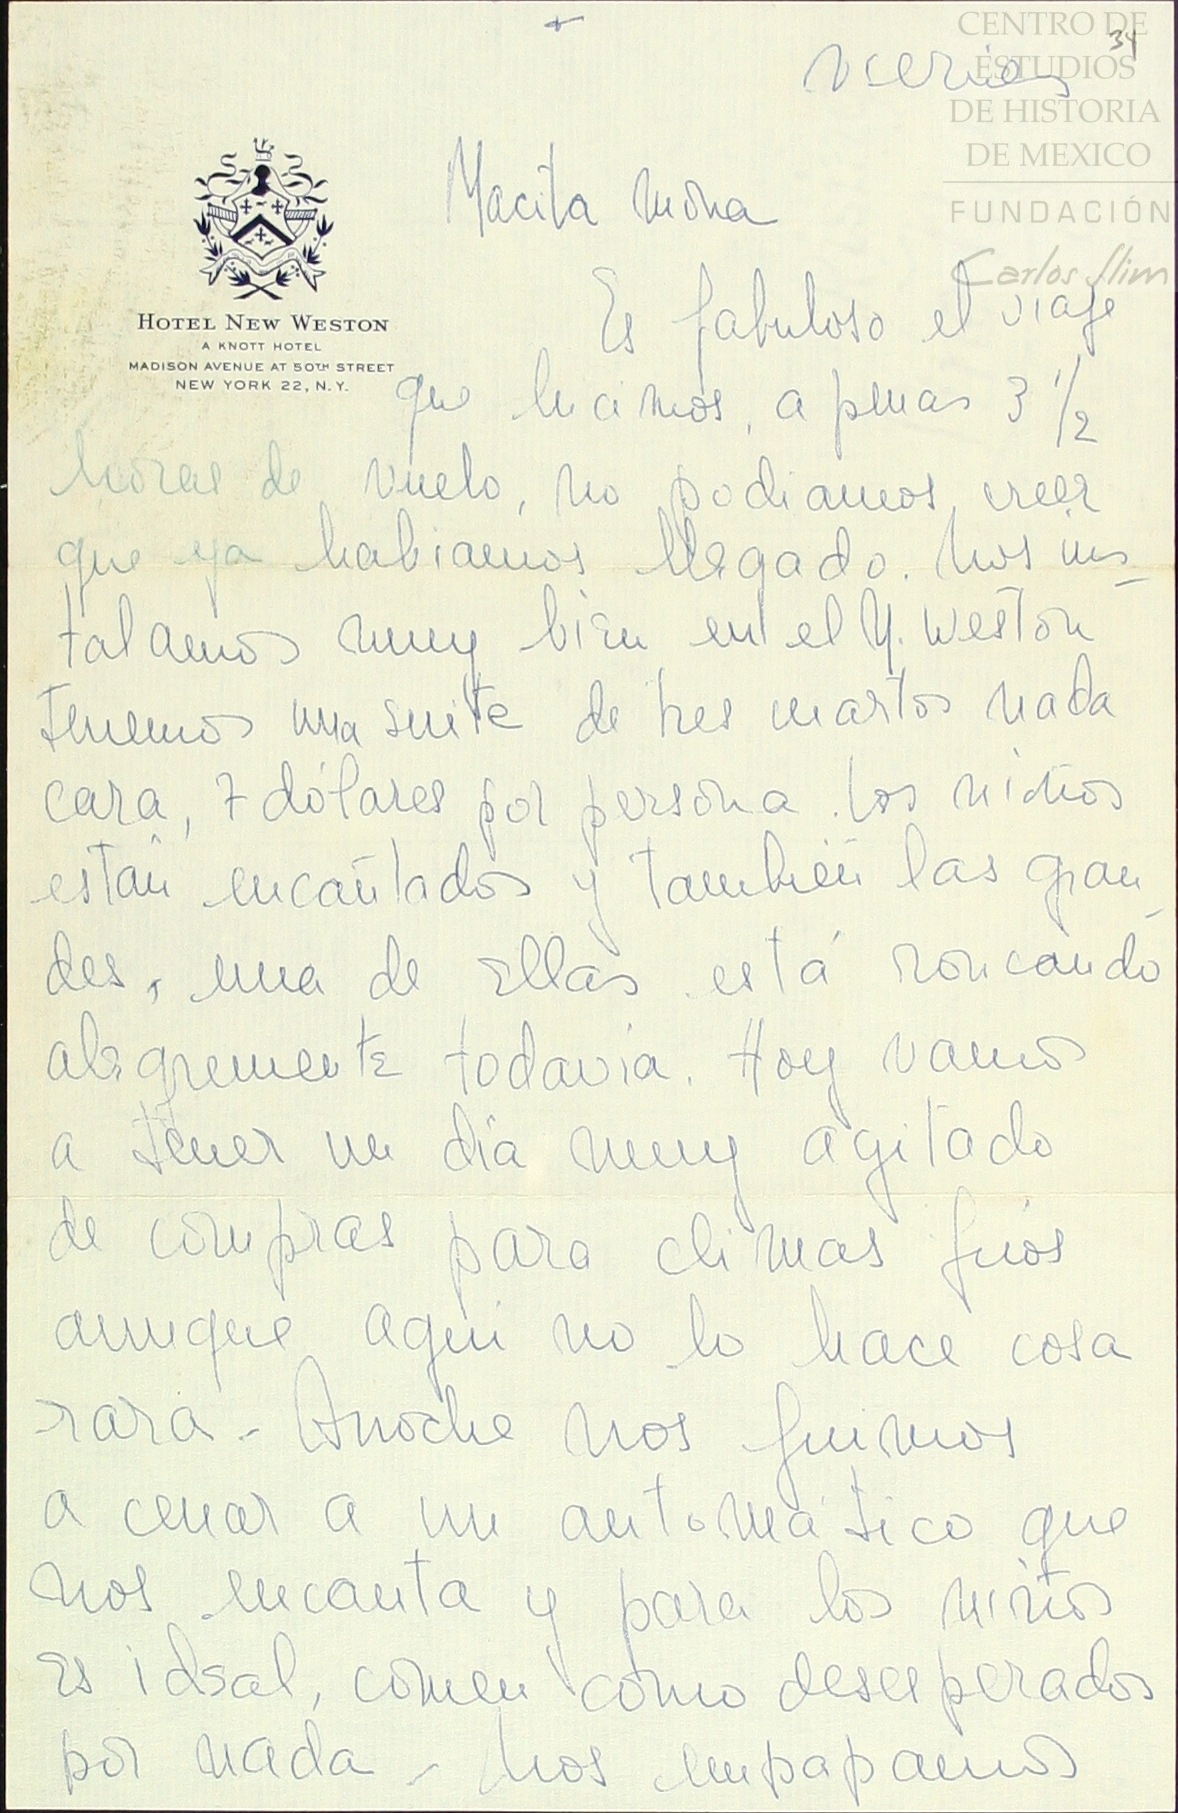 +
CENTRO DE
ESTUDIOS
DE HISTORIA
DE MEXICO
FUNDACIÓN
Carlos Slim
34
viernes
Macita mona
HOTEL NEW WESTON
A KNOTT HOTEL
MADISON AVENUE AT 50TH STREET
NEW YORK 22, N.Y.
Es fabuloso el viaje
que hicimos, apenas 3 1/2
horas de vuelo, no podiamos creer
que ya habiamos llegado. Nos ins_
talamos muy bien en el N. Weston
tenemos una suite de tres cuartos nada
cara, 7 dólares por persona. Los niños
están encantados y también las gran_
des, una de ellas está roncando
alegremente todavía. Hoy vamos
a tener un día muy agitado
de compras para climas fríos
aunque aquí no lo hace cosa
rara - Anoche nos fuimos
a cenar a un automático que
nos encanta y para los niños
es ideal, comen como desesperados
por nada - Nos empapamos